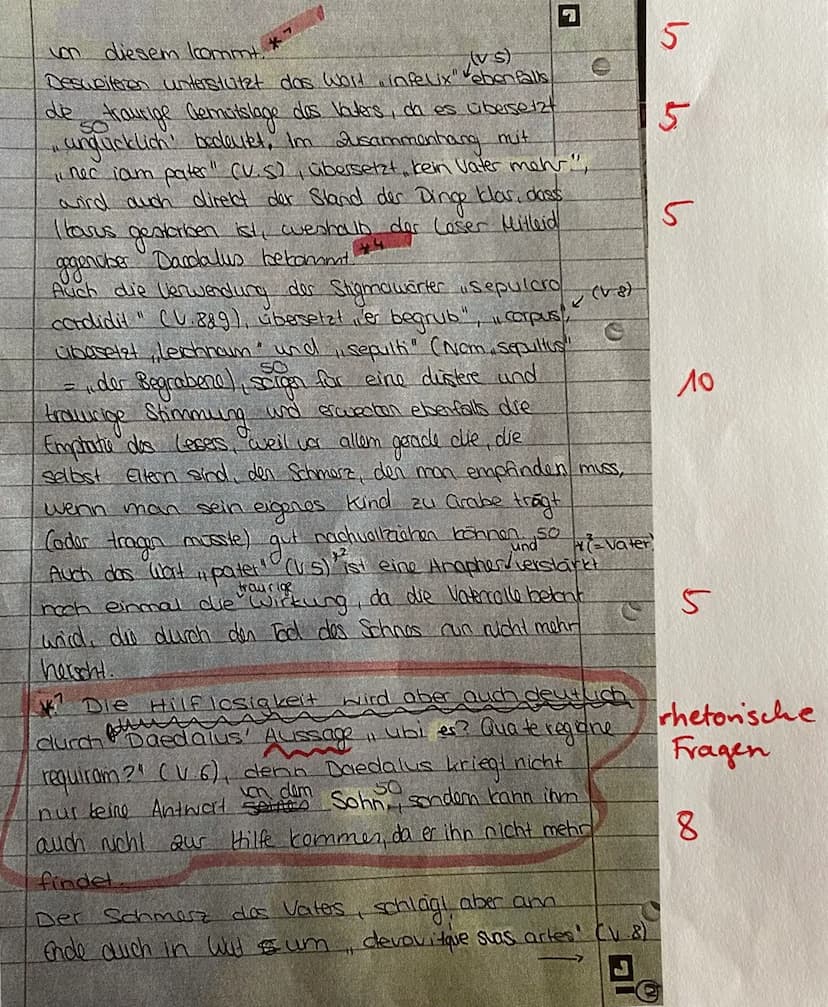 von diesem kommt. *⁷
5
(V 5)
Desweiteren unterstützt das Wort „infelix" ebenfalls
die traurige Gemütslage des Vaters, da es übersetzt
5
so
„unglücklich" bedeutet. Im Zusammenhang mit
„nec iam pater" (V. 5), übersetzt „kein Vater mehr",
wird auch direkt der Stand der Dinge klar, dass
5
Ikarus gestorben ist, weshalb der Leser Mitleid
gegenüber Daedalus bekommt. *4
Auch die Verwendung der Stigmawörter „sepulcro
(V 8)
condidit" (V. 8&9), übersetzt „er begrub", „corpus",
übersetzt „leichnam" und „sepulti" (Nom. „sepultus"
so
= „der Begrabene), sorgen für eine düstere und
10
traurige Stimmung und erwecken ebenfalls die
Emptatie des Lesers, weil vor allem gerade die, die
selbst Eltern sind, den Schmerz, den man empfinden muss,
wenn man sein eigenes Kind zu Grabe trägt
(oder tragen müsste) gut nachvollziehen können. so
und *²(=Vater)
Auch das Wort „pater" (V 5)*² ist eine Anapher verstärkt
traurige
noch einmal die Wirkung, da die Vaterrolle betont
5
wird, die durch den Tod des Sohnes nun nicht mehr
herscht.
*⁷ Die Hilflosigkeit wird aber auch deutlich
rhetorische
durch Daedalus' Aussage „ubi es? Qua te regione
Fragen
requiram?" (V 6), denn Daedalus kriegt nicht
von dem so
nur keine Antwort Sohn, sondern kann ihm
8
auch nicht zur Hilfe kommen, da er ihn nicht mehr
findet.
Der Schmerz des Vaters, schlägt aber am
Ende auch in Wut um „devovitque suas artes" (V. 8)